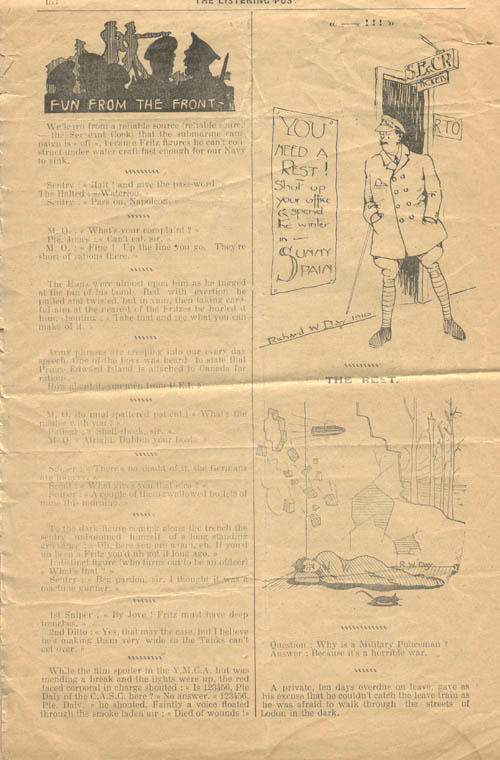 THE LISTENING POST
FUN FROM THE FRONT
We learn from a reliable source (reliable
the Sergeant Cook) that the submarine cam-
paign is « off », because Fritz figures he can't con-
struct under water craft fast enough for our Navy
to sink.
Sentry : « Halt ! and give the pass-word.
The Halted : « Waterloo.
Sentry : « Pass on, Napoleon. »
M. O. : « What's your complaint ? »
Pte. Jones : « Can't eat, sir. »
M. O. : « Fine ! Up the line you go. They're
short of rations there. »
The Huns were almost upon him as he tugged
at the pin of his bomb. Red with exertion he
pulled and twisted, but in vain, then taking care-
ful aim at the nearest of the Fritzes he hurled it
him, shouting : « Take that and see what you can
make of it. »
Army phrases are creeping into our every day
speech. One of the boys was heard to state that
Prince Edward Island is attached to Canada for
rations.
How about it, you men from P.E.I. ?
M. O. (to mud-spattered patient) « What's the
matter with you ? »
Patient : « Shell-shock, sir. »
M. O. : « Alright. Dubbin your boots. »
Sniper : « There's no doubt of it, the Germans
are
Scout : « What gives you that idea ? »
Sniper : « A couple of them swallowed bullets of
mine this morning. »
To the dark figure coming along the trench the
sentry unbosomed himself of a long standing
grievance : « Oh, here you are again, eh. If you'd
uh been a Fritz you'd uh got it long ago. »
Indistinct figure (who turns out to be an officer)
« What's that ? »
Sentry : « Beg pardon, sir, I thought it was a
machine gunner. »
1st Sniper : « By Jove ! Fritz must have deep
trenches. »
2nd Ditto : « Yes, that may the case, but I believe
he's making them very wide so the Tanks can't
get over. »
While the film spoiler in the Y.M.C.A. hut was
mending a break and the lights were up, the red
faced corporal in charge shouted : « Is 123456, Pte
Daly of the C.A.S.C. here ? » No answer. « 123456,
Pte. Daly. » he shouted. Faintly a voice floated
through the smoke laden air : « Died of wounds !»
« —— !!! »
S.E&CR
TICKETS
RTO
YOU
NEED A
REST!
Shut up
your office
& spend
the winter
in —
SUNNY
SPAIN
Richard W Day 1916
THE REST.
R W DAY
Question : Why is a Military Policeman ?
Answer : Because it's a horrible war.
A private, ten days overdue on leave, gave as
his excuse that he couldn't catch the leave train as
he was afraid to walk through the streets of
Lodon in the dark.